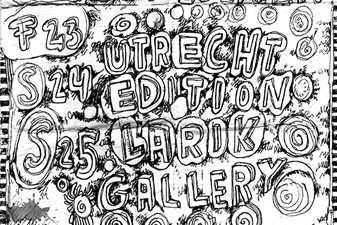 F 23 UTRECHT
S 24 EDITION
S 25 LARIK
GALLERY